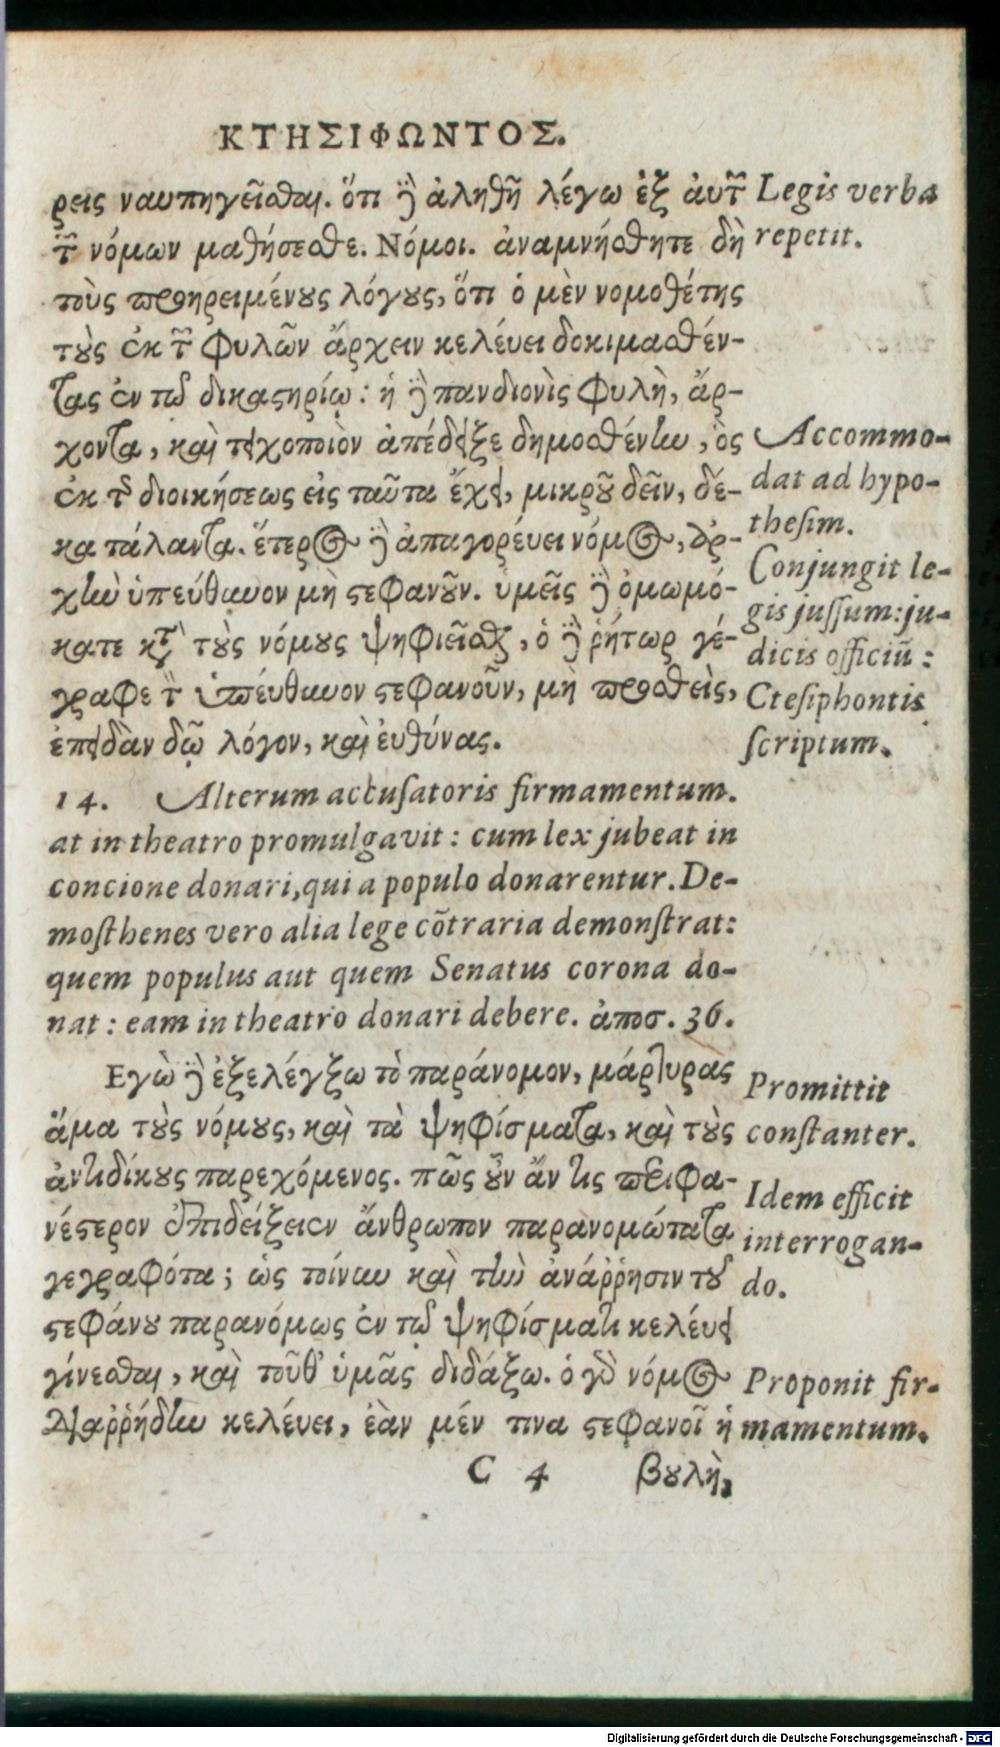 ΚΤΗΣΙΦΩΝΤΟΣ.
ρεις ναυπηγεῖσθαι. ὅτι δὲ ἀληθῆ λέγω ἐξ αὐτῶν
τῶν νόμων μαθήσεσθε. Νόμοι. ἀναμνήσθητε δὴ
τοὺς προηρειμένους λόγους, ὅτι ὁ μὲν νομοθέτης
τοὺς ἐκ τῶν φυλῶν ἄρχειν κελεύει δοκιμασθέν-
τας ἐν τῷ δικαστηρίῳ: ἡ δὲ πανδιονὶς φυλὴ, ἄρ-
χοντα, καὶ τειχοποιὸν ἀπέδειξε δημοσθένην, ὃς
ἐκ τῆς διοικήσεως εἰς ταῦτα ἔχει, μικροῦ δεῖν, δέ-
κα τάλαντα. ἕτερος δὲ ἀπαγορεύει νόμος, ἀρ-
χὴν ὑπεύθυνον μὴ στεφανοῦν. ὑμεῖς δὲ ὀμωμό-
κατε κατὰ τοὺς νόμους ψηφιεῖσθαι, ὁ δὲ ῥήτωρ γέ-
γραφε τὸν ὑπεύθυνον στεφανοῦν, μὴ προσθεὶς,
ἐπειδὰν δῷ λόγον, καὶ εὐθύνας.
Legis verba
repetit.
Accommo-
dat ad hypo-
thesim.
Conjungit le-
gis jussum: ju-
dicis officiū:
Ctesiphontis
scriptum.
14. Alterum accusatoris firmamentum.
at in theatro promulgavit: cum lex jubeat in
concione donari, qui a populo donarentur. De-
mosthenes vero alia lege cōtraria demonstrat:
quem populus aut quem Senatus corona do-
nat: eam in theatro donari debere. ἀποσ. 36.
Εγὼ δὲ ἐξελέγξω τὸ παράνομον, μάρτυρας
ἅμα τοὺς νόμους, καὶ τὰ ψηφίσματα, καὶ τοὺς
ἀντιδίκους παρεχόμενος. πῶς οὖν ἄν τις περιφα-
νέστερον ἐπιδείξειεν ἄνθρωπον παρανομώτατα
γεγραφότα; ὡς τοίνυν καὶ τὴν ἀνάῤῥησιν τοῦ
στεφάνου παρανόμως ἐν τῷ ψηφίσματι κελεύει
γίνεσθαι, καὶ τοῦθ' ὑμᾶς διδάξω. ὁ γὰρ νόμος
διαῤῥήδην κελεύει, ἐὰν μέν τινα στεφανοῖ ἡ
Promittit
constanter.
Idem efficit
interrogan-
do.
Proponit fir-
mamentum.
C 4 βουλὴ,
Digitalisierung gefördert durch die Deutsche Forschungsgemeinschaft - DFG